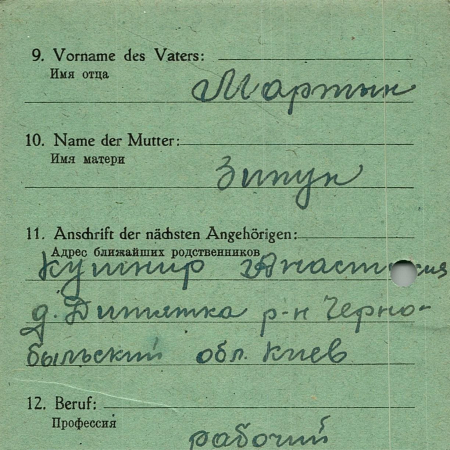 9. Vorname des Vaters:
Имя отца
Мартын
10. Name der Mutter:
Имя матери
Зипун
11. Anschrift der nächsten Angehörigen:
Адрес ближайших родственников
Кушнир Анастасия
д. Дитятка р-н Черно-
быльский обл. Киев
12. Beruf:
Профессия
рабочий